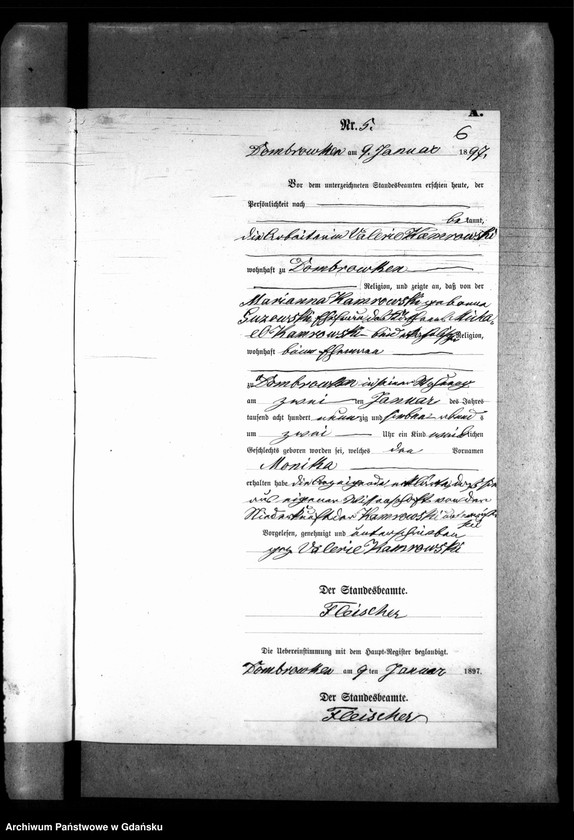 A.
Nr. 5.
6
Dombrowken am 9. Januar 1897.
Vor dem unterzeichneten Standesbeamten erschien heute, der
Persönlichkeit nach
bekannt,
die Arbeiterin Valerie Kamrowski
wohnhaft zu Dombrowken
Religion, und zeigte an, daß von der
Marianna Kamrowski geborene
Guzowski Ehefrau des Micha-
el Kamrowski beide katholisch Religion,
wohnhaft beim Ehemann
zu Dombrowken in seiner Wohnung
am zwei ten Januar des Jahres
tausend acht hundert neunzig und sieben Abends
um zwei Uhr ein Kind weiblichen
Geschlechts geboren worden sei, welches den Vornamen
Monika
erhalten habe. die Anzeigende erklärte, daß sie
aus eigener Wissenschaft von der
Niederkunft der Kamrowski unterrichtet
sei
Vorgelesen, genehmigt und unterschrieben
gez Valerie Kamrowski
Der Standesbeamte.
Fleischer
Die Uebereinstimmung mit dem Haupt-Register beglaubigt.
Dombrowken am 9ten Januar 1897.
Der Standesbeamte.
Fleischer
Archiwum Państwowe w Gdańsku